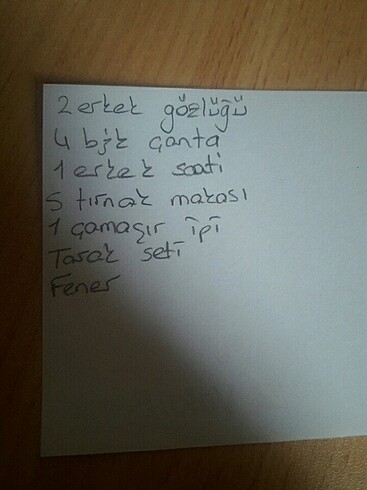 2 erkek gözlüğü
4 bjk çanta
1 erkek saati
5 tırnak makası
1 çamaşır ipi
Tarak seti
Fener